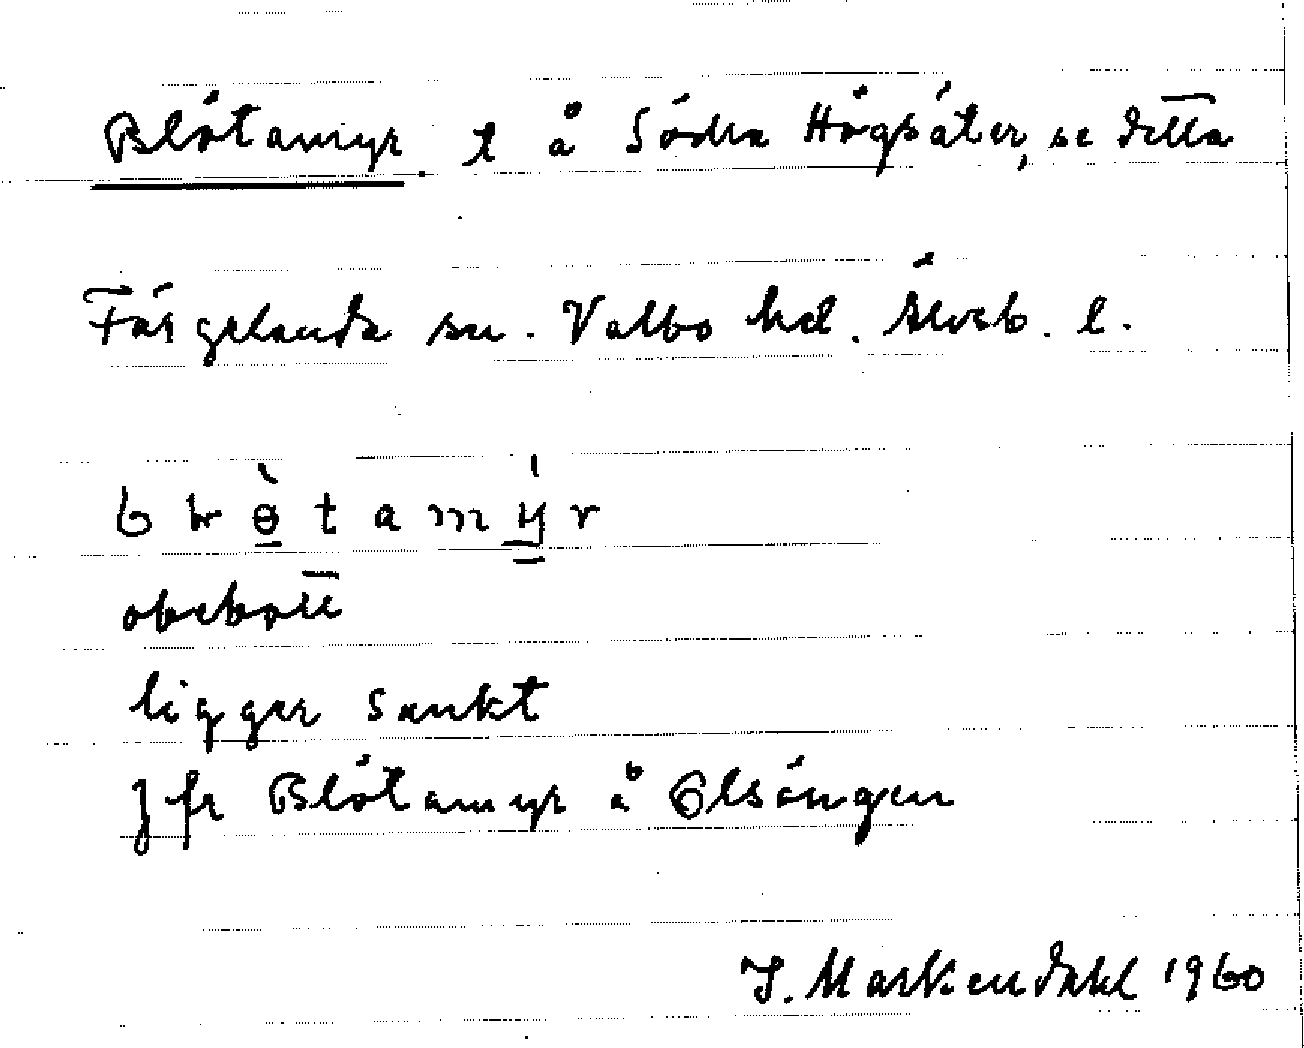 Blötamyr. t å Södra Högsäter, se detta
Färgelanda sn. Valbo hd. Älvsb. l.
obebott
ligger sankt
Jfr Blötamyr å Olsängen
J. Markendahl 1960